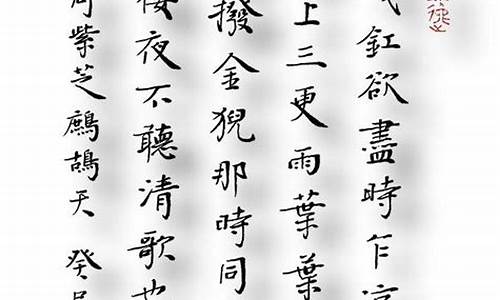 釭欲盡時乍凉
上三更雨葉葉
撥金猊那時同
樓夜不聽清歌也
周紫芝鷓鴣天 癸